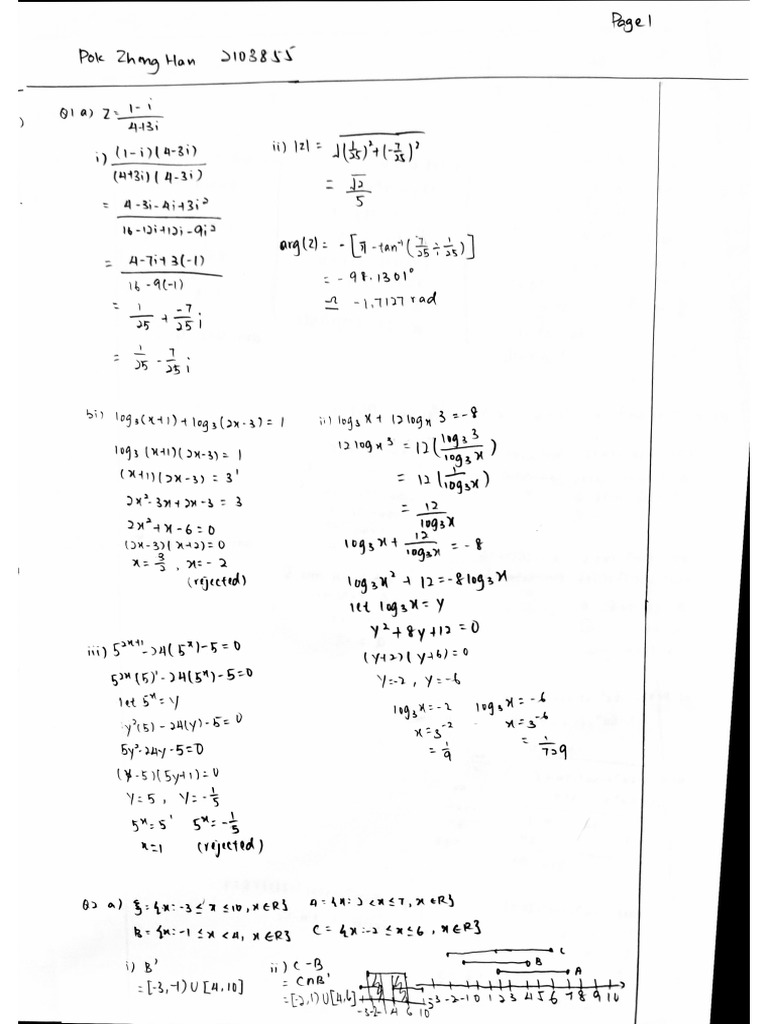 Page 1
Pok Zhong Han 2103855
Q1 a) Z = (1-i)/(4+3i)
i) (1-i)(4-3i)/(4+3i)(4-3i)
= (4-3i-4i+3i²)/(16-12i+12i-9i²)
= (4-7i+3(-1))/(16-9(-1))
= 1/25 + -7/25 i
= 1/25 - 7/25 i
ii) |z| = √((1/25)²+(-7/25)²)
= √2/5
arg(z) = -[π-tan⁻¹(7/25 ÷ 1/25)]
= -98.1301°
≏ -1.7127 rad
bi) log₃(x+1)+log₃(2x-3)=1
log₃(x+1)(2x-3)=1
(x+1)(2x-3)=3¹
2x²-3x+2x-3=3
2x²+x-6=0
(2x-3)(x+2)=0
x=3/2, x=-2
(rejected)
ii) log₃x+12logₓ3=-8
12logₓ3 = 12(log₃3/log₃x)
= 12(1/log₃x)
= 12/log₃x
log₃x + 12/log₃x = -8
log₃x²+12=-8log₃x
let log₃x=y
y²+8y+12=0
(y+2)(y+6)=0
y=-2, y=-6
log₃x=-2 log₃x=-6
x=3⁻² x=3⁻⁶
=1/9 =1/729
iii) 5²ˣ⁺¹-24(5ˣ)-5=0
5²ˣ(5)¹-24(5ˣ)-5=0
let 5ˣ=y
y²(5)-24(y)-5=0
5y²-24y-5=0
(y-5)(5y+1)=0
y=5, y=-1/5
5ˣ=5¹ 5ˣ=-1/5
x=1 (rejected)
Q2 a) ξ={x:-3≤x≤10,x∈R} A={x:2<x≤7,x∈R}
B={x:-1≤x<4,x∈R} C={x:-2≤x≤6,x∈R}
i) B'
=[-3,-1)∪[4,10]
ii) C-B
=C∩B'
=[-2,1)∪[4,6]
-3 -2 1 4 6 10
C
B
A
-3 -2 -1 0 1 2 3 4 5 6 7 8 9 10